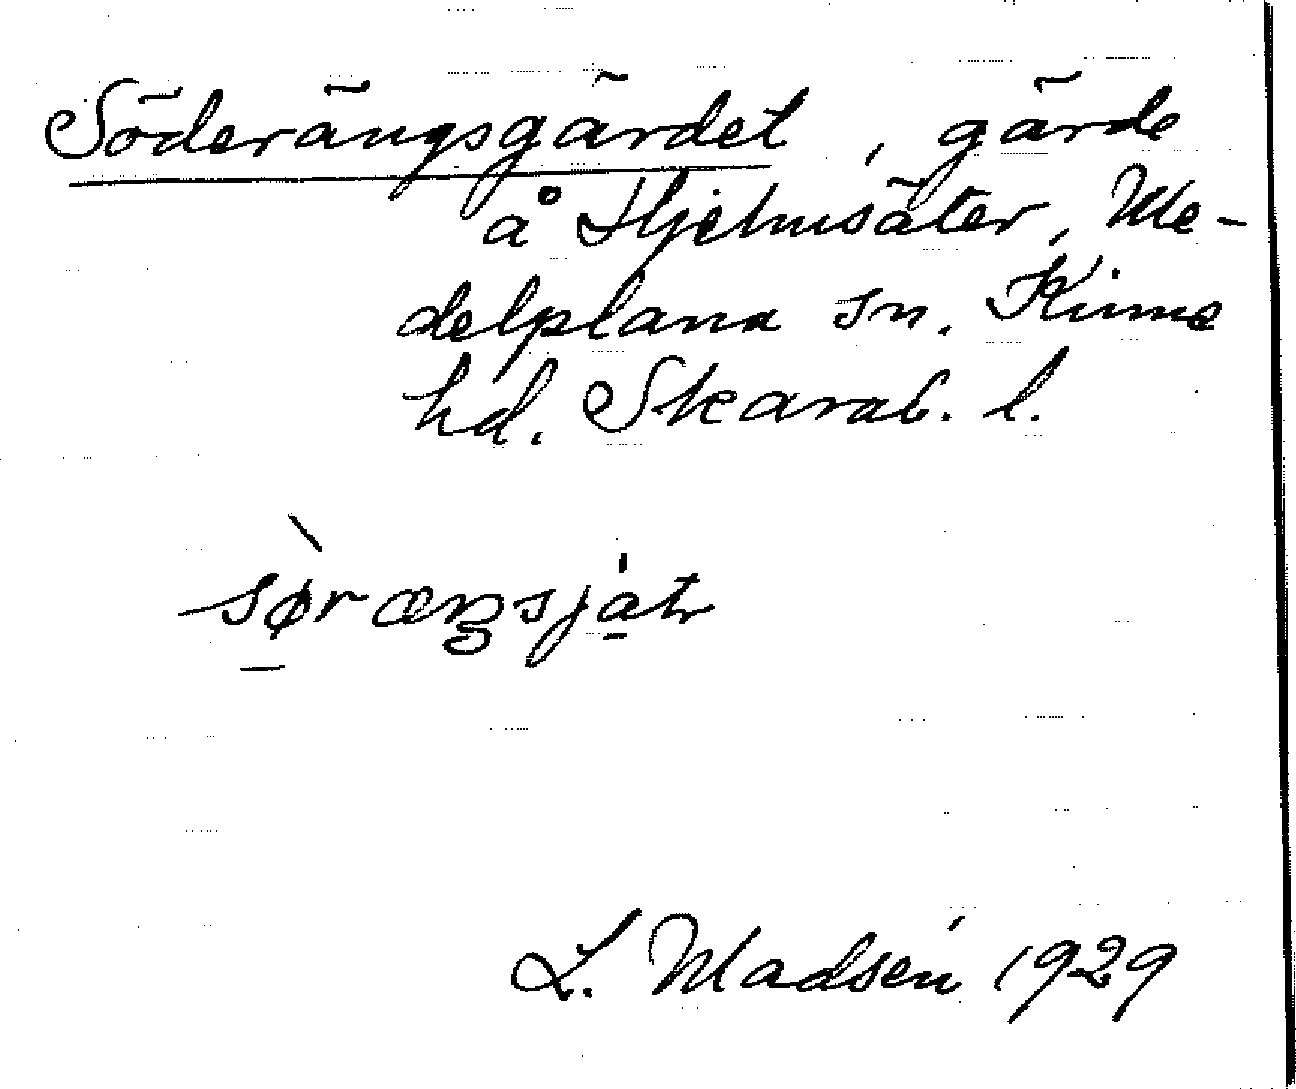 Söderängsgärdet, gärde
å Hjelmsäter, Me-
delplana sn. Kinne
hd. Skarab. l.
sørængsjat
L. Madsén 1929